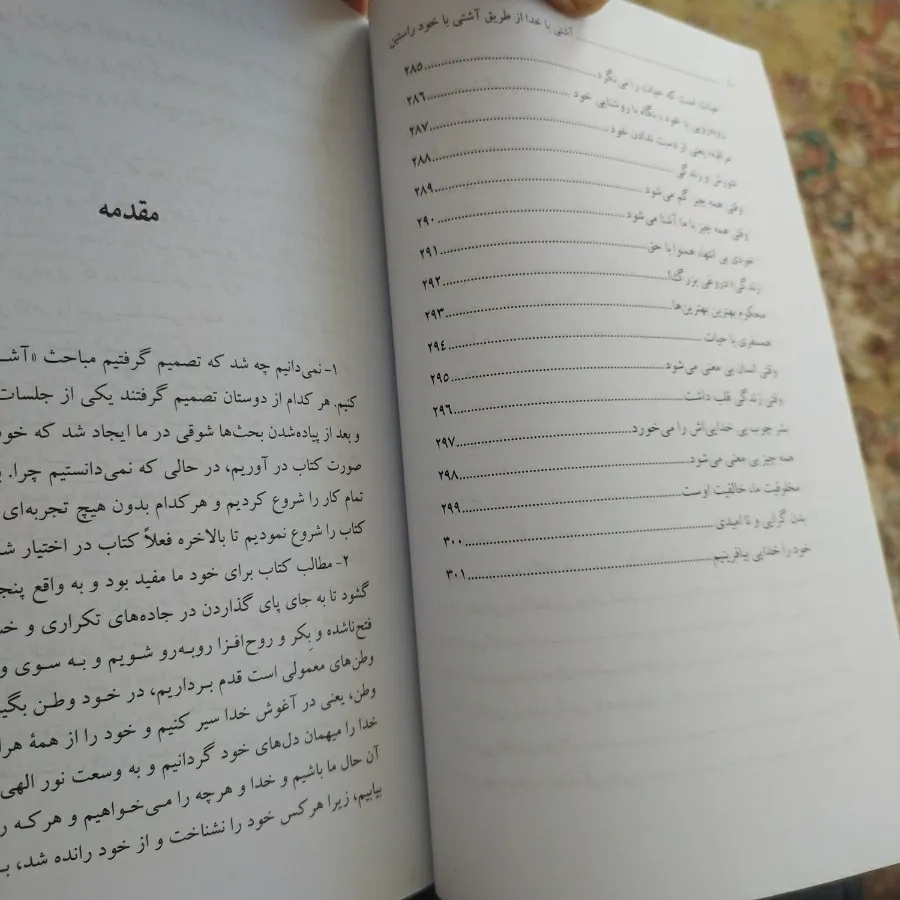 آشتی با خدا از طریق آشتی با خود راستین
حیات است که حیات را می‌نگرد ۲۸۵
روبه‌رویی با خود و نگاه با روشنایی خود ۲۸۶
مراقبه؛ یعنی از دست ندادن خود ۲۸۷
شورش و زندگی ۲۸۸
وقتی همه چیز گم می‌شود ۲۸۹
وقتی همه چیز با ما آشنا می‌شود ۲۹۰
خودی بی انتها، همنوا با حق ۲۹۱
زندگی؛ دروغی بزرگ! ۲۹۲
محکوم بهترین بهترین‌ها ۲۹۳
همسفری با حیات ۲۹۴
وقتی انسان بی معنی می‌شود ۲۹۵
وقتی زندگی قلب داشت ۲۹۶
بشر چوب بی خدایی‌اش را می‌خورد ۲۹۷
همه چیز بی معنی می‌شود ۲۹۸
مخلوقیت ما، خالقیت اوست ۲۹۹
بدن گرایی و نا امیدی ۳۰۰
خود را خدایی بیافرینیم ۳۰۱
مقدمه
۱- نمی‌دانیم چه شد که تصمیم گرفتیم مباحث «آشـ
کنیم. هر کدام از دوستان تصمیم گرفتند یکی از جلسات
و بعد از پیاده‌شدن بحث‌ها شوقی در ما ایجاد شد که خو
صورت کتاب در آوریم، در حالی که نمی‌دانستیم چرا.
تمام کار را شروع کردیم و هر کدام بدون هیچ تجربه‌ای
کتاب را شروع نمودیم تا بالاخره فعلاً کتاب در اختیار شـ
۲- مطالب کتاب برای خود ما مفید بود و به واقع پنجـ
گشود تا به جای پای گذاردن در جاده‌های تکراری و خسـ
فتح‌ناشده و بِکر و روح‌افزا روبه‌رو شویم و به سوی و
وطن‌های معمولی است قدم برداریم، در خود وطن بگیـ
وطن، یعنی در آغوش خدا سیر کنیم و خود را از همهٔ هرا
خدا را میهمان دل‌های خود گردانیم و به وسعت نور الهی
آن حال ما باشیم و خدا و هرچه را می‌خواهیم و هرکه ر
بیابیم، زیرا هرکس خود را نشناخت و از خود رانده شد، بـ